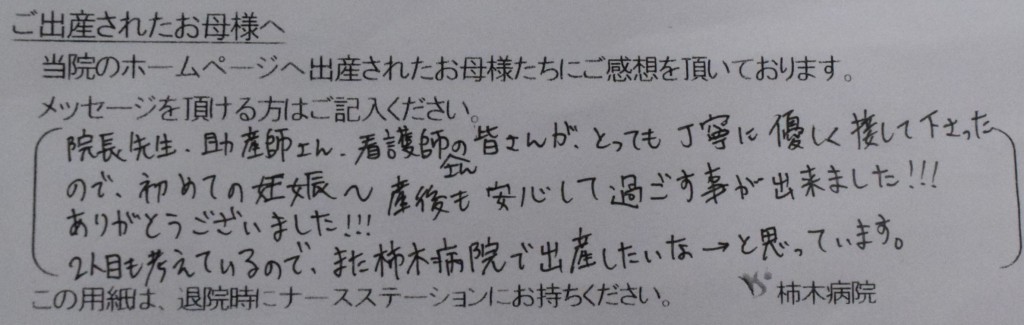 ご出産されたお母様へ
当院のホームページへ出産されたお母様たちにご感想を頂いております。
メッセージを頂ける方はご記入ください。
院長先生、助産師さん、看護師さんの皆さんが、とっても丁寧に優しく接して下さった
ので、初めての妊娠〜産後も安心して過ごす事が出来ました!!!
ありがとうございました!!!
2人目も考えているので、また柿木病院で出産したいな→と思っています。
この用紙は、退院時にナースステーションにお持ちください。
柿木病院